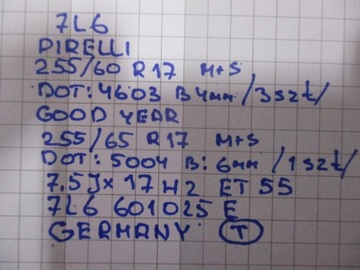 7L6
PIRELLI
255/60 R17 M+S
DOT: 4603 B4mm /3szt/
GOOD YEAR
255/65 R17 M+S
DOT: 5004 B: 6mm /1szt/
7.5Jx17H2 ET55
7L6 601025 E
GERMANY T